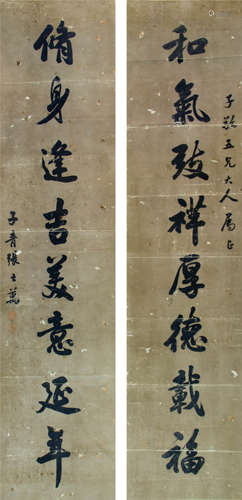 和氣致祥厚德載福
子五兄大人屬正
脩身逢吉美意延年
子青張之萬